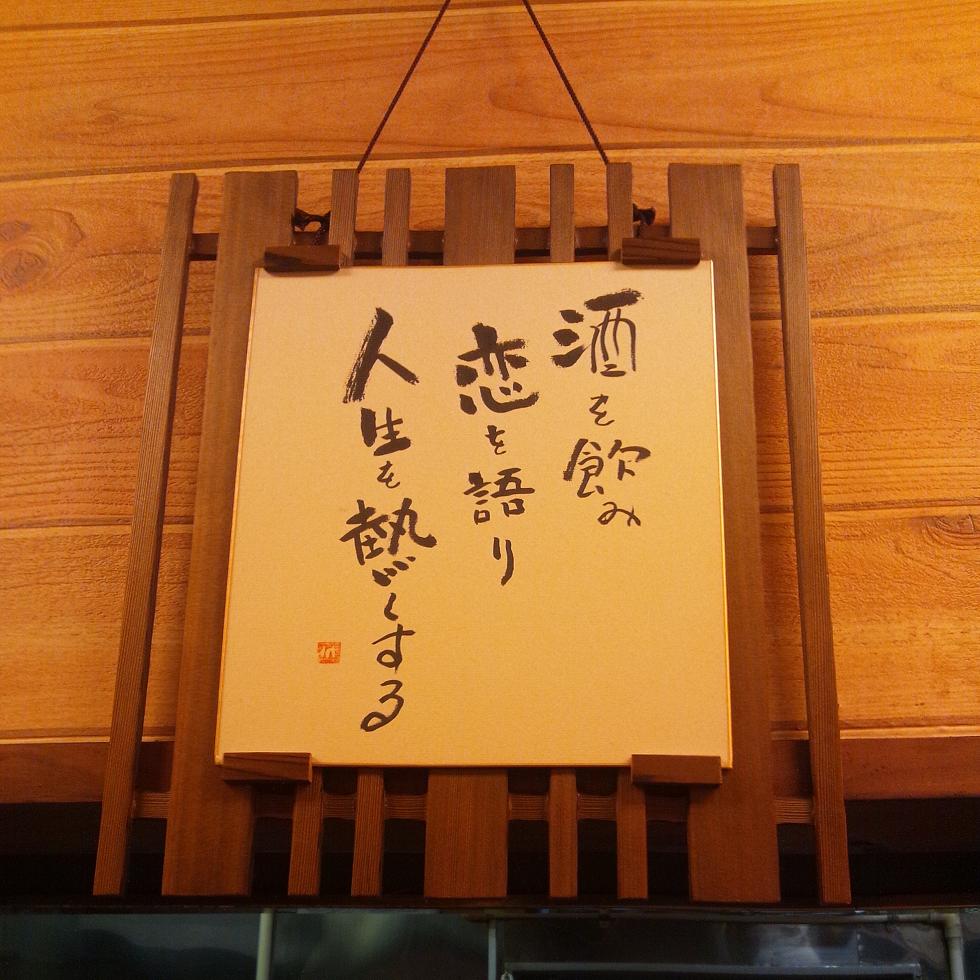 酒を飲み
恋を語り
人生を熱くする